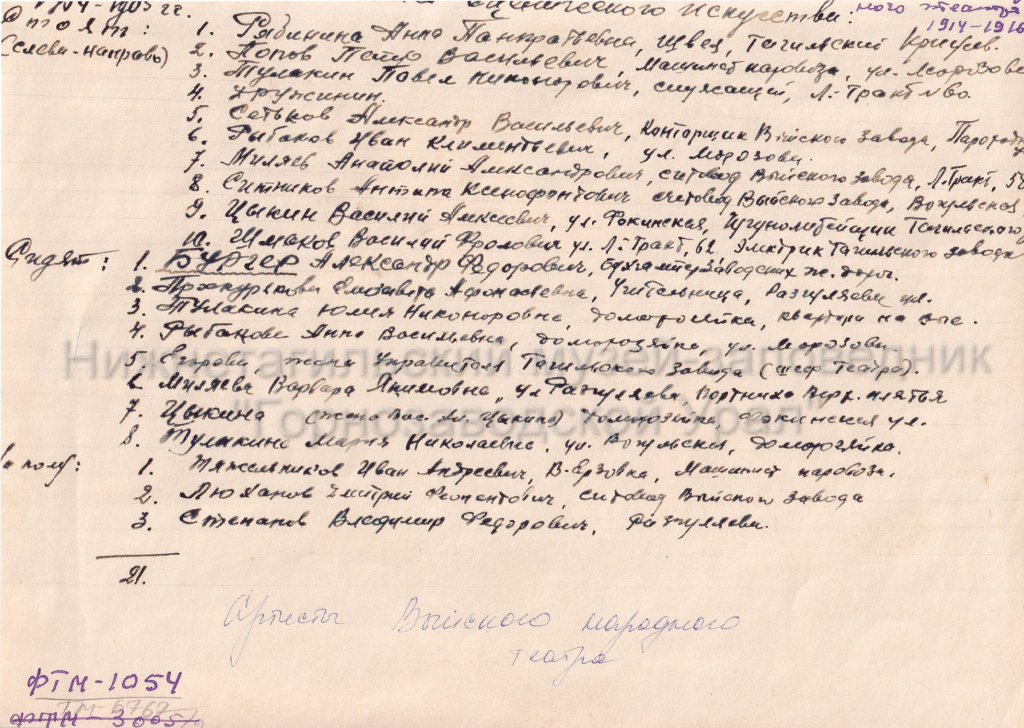 1904-1905 гг. сценического искусства: ного театра
1914-1916
Стоят: 1. Рябинина Анна Панкратьевна, Швея, Тагильский Кривув.
(слева-направо) 2. Попов Петр Васильевич, Машинист паровоза, ул. Морозова
3. Тулакин Павел Никонорович, служащий, Л.-Тракт № 60.
4. Дружинин.
5. Сетьков Александр Васильевич, Конторщик Выйского завода,
6. Рыбаков Иван Климентьевич, ул. Морозова.
7. Миляев Анатолий Александрович, счетовод Выйского завода, Л. Тракт, 58
8. Ситников Антипа Ксенофонтович счетовод Выйского завода, Вогульская
9. Цыкин Василий Алексеевич, ул. Фокинская, Чугунолитейщик Тагильского
10. Шмаков Василий Фролович ул. Л.-Тракт, 62, Электрик Тагильского завода
Сидят: 1. БУРГЕР Александр Федорович, бухгалтер Заводских ж. дорог.
2. Проскурякова Елизавета Афонасьевна, Учительница, Разгуляева ул.
3. Тулакина Юлия Никоноровна, домохозяйка, квартира на
4. Рыбакова Анна Васильевна, домохозяйка, ул. Морозова
5. Егорова, жена Управителя Тагильского Завода (шеф Театра).
6. Миляева Варвара Якимовна, ул Разгуляева, Портниха Верх. платья
7. Цыкина (жена Вас. Ал. Цыкина) домохозяйка, Фокинская ул.
8. Тулакина Мария Николаевна, ул. Вогульская, домохозяйка.
на полу: 1. Тяжельников Иван Андреевич, В-Ерзовка, Машинист паровоза.
2. Люханов Дмитрий Феопентович, счетовод Выйского завода
3. Степанов Владимир Федорович, Разгуляева.
21.
Артисты Выйского народного
театра
ФТМ-1054
ТМ-6767
ФТМ-3005/
Нижнетагильский музей-заповедник
"Горнозаводской Урал"